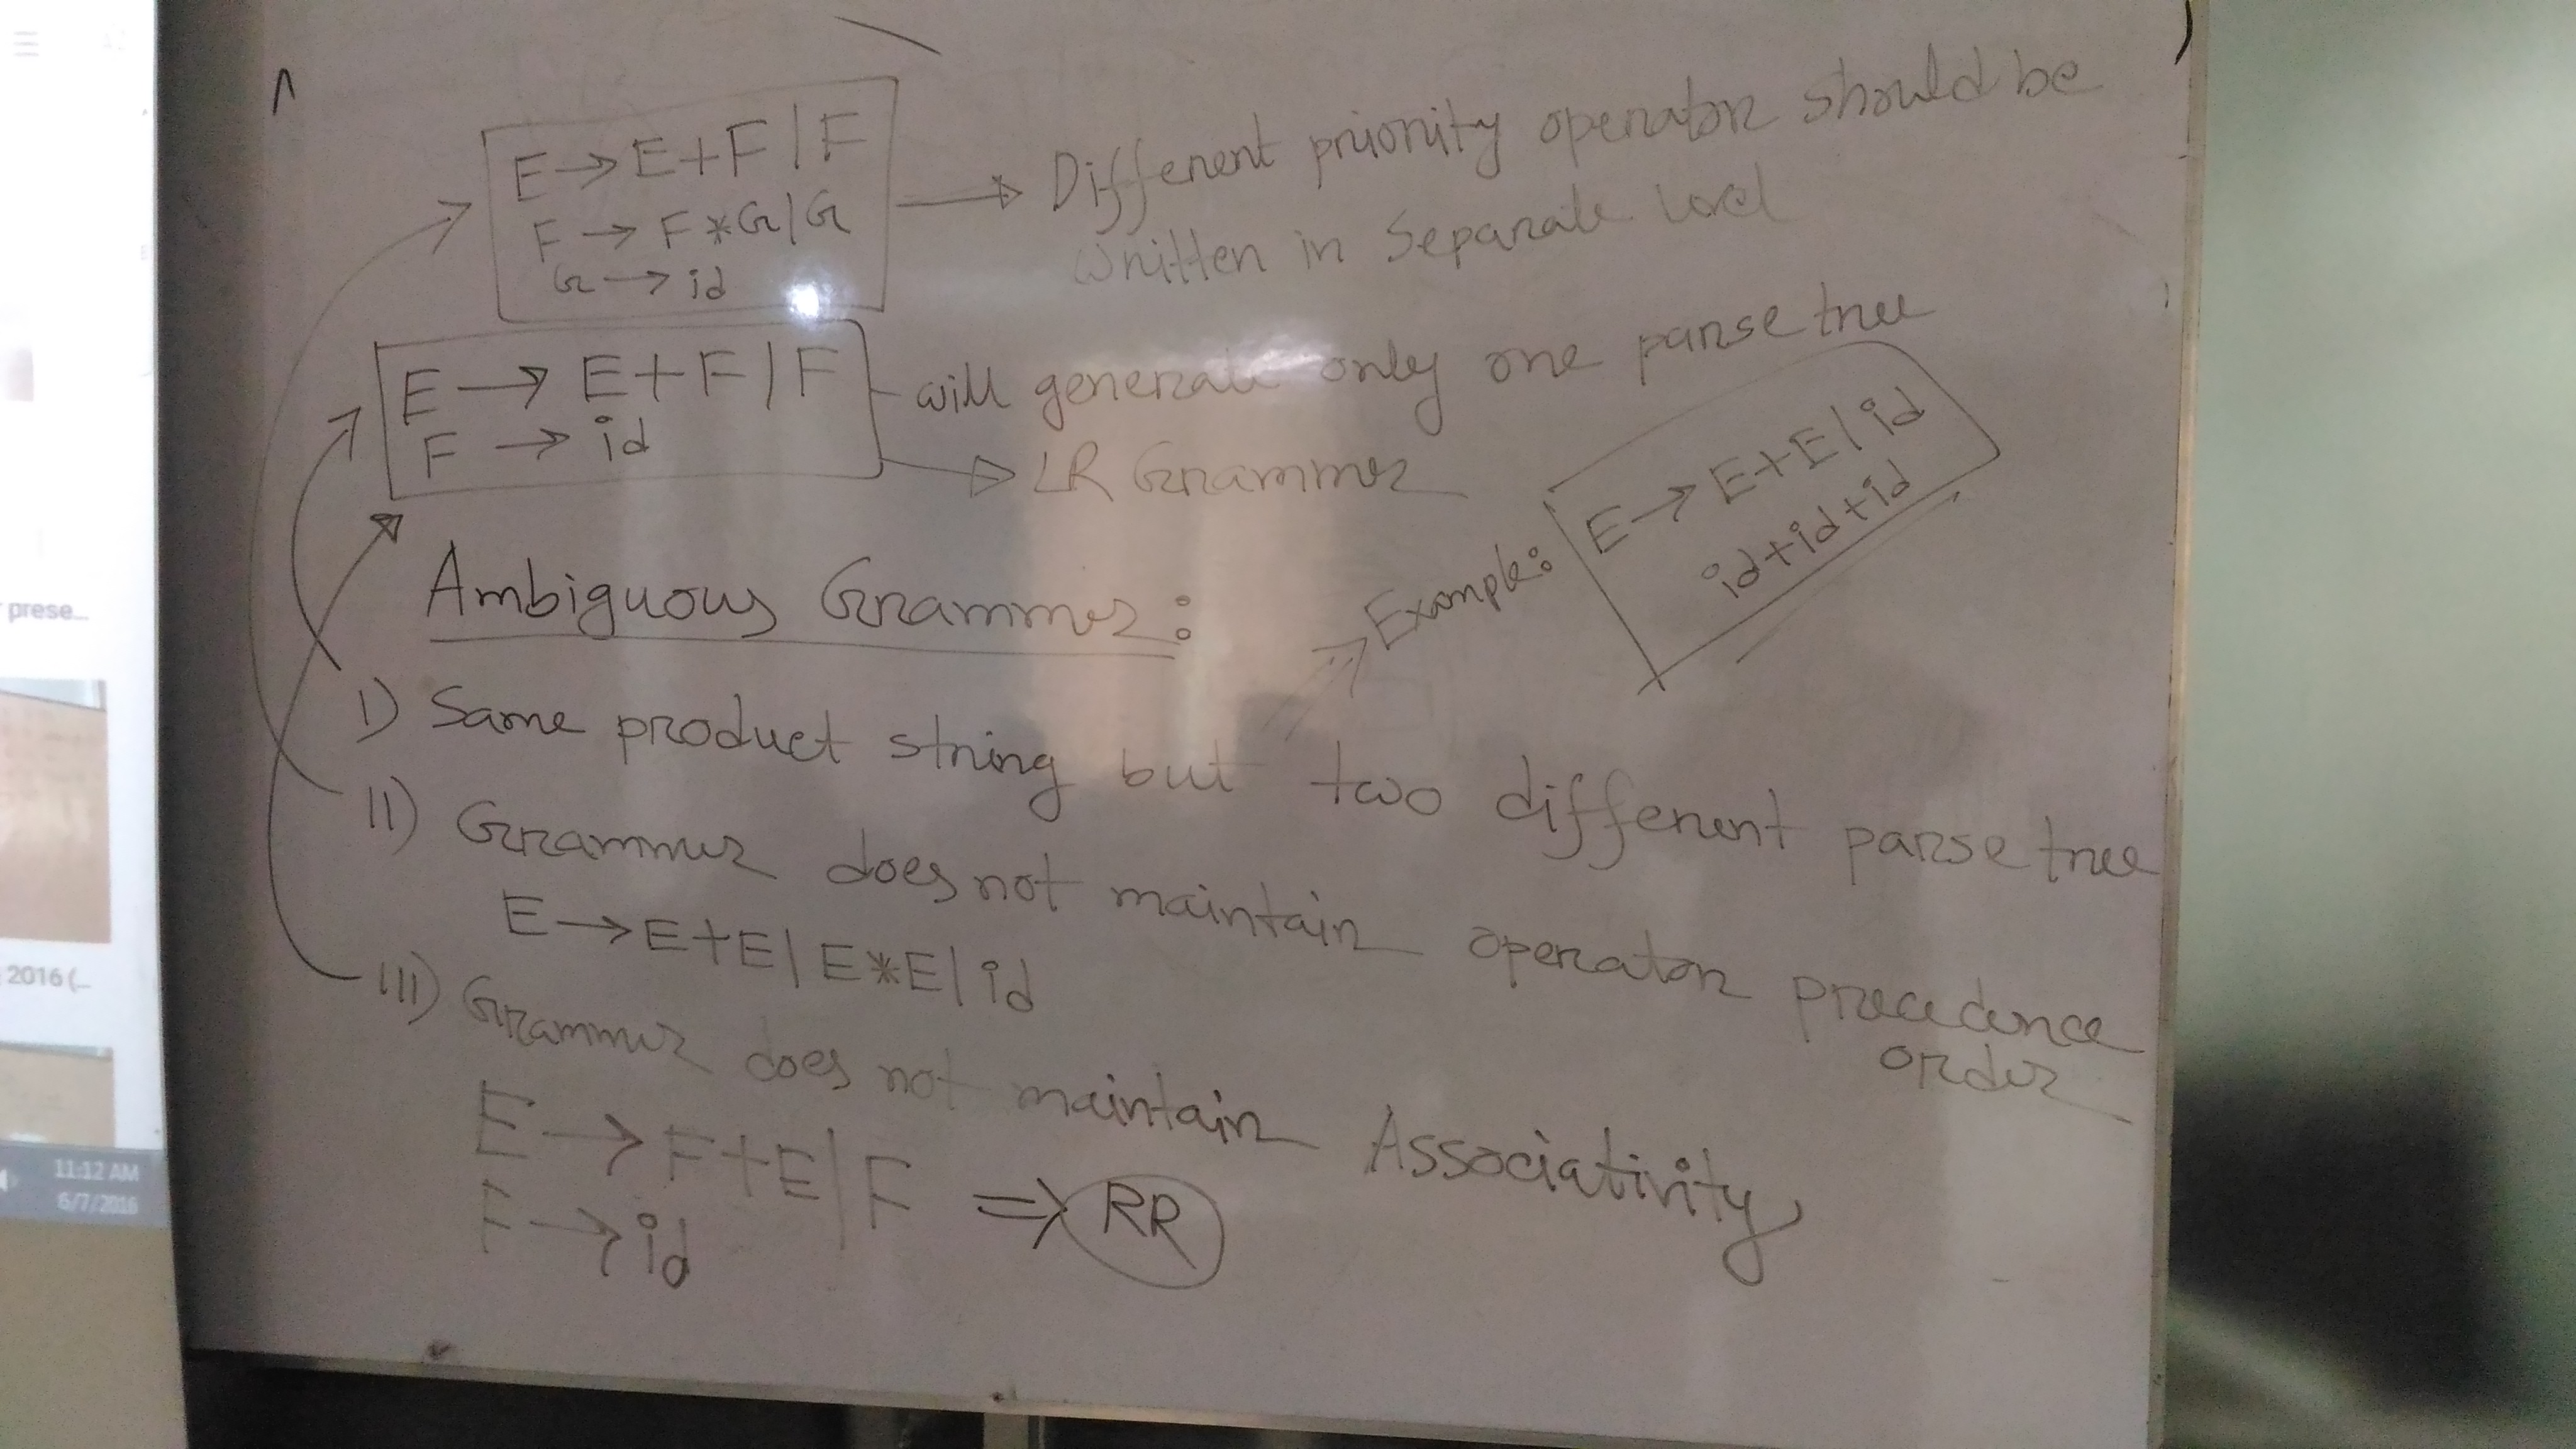 E → E + F | F
F → F * G | G
G → id
Different priority operator should be
written in Separate level
E → E + F | F
F → id
will generate only one parse tree
LR Grammer
Example:
E → E + E | id
id + id + id
Ambiguous Grammer:
I) Same product string but two different parse tree
II) Grammer does not maintain operator precedence
order
E → E + E | E * E | id
III) Grammer does not maintain Associativity
E → F + E | F
F → id
⇒ RR
prese...
2016 (...
11:12 AM
6/7/2016